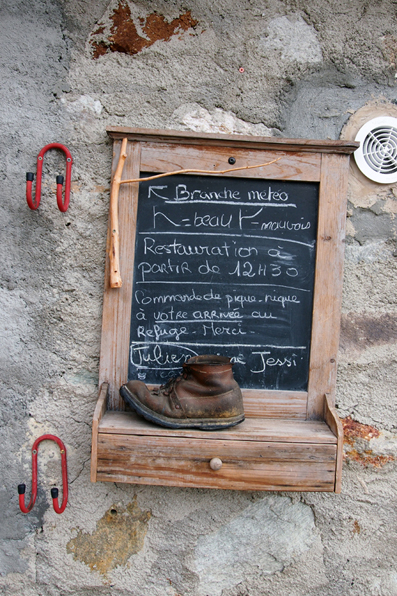 Branche météo
= beau = mauvais
Restauration à
partir de 12H30
Commande de pique-nique
à votre arrivée au
Refuge - Merci -
Julie Jessi